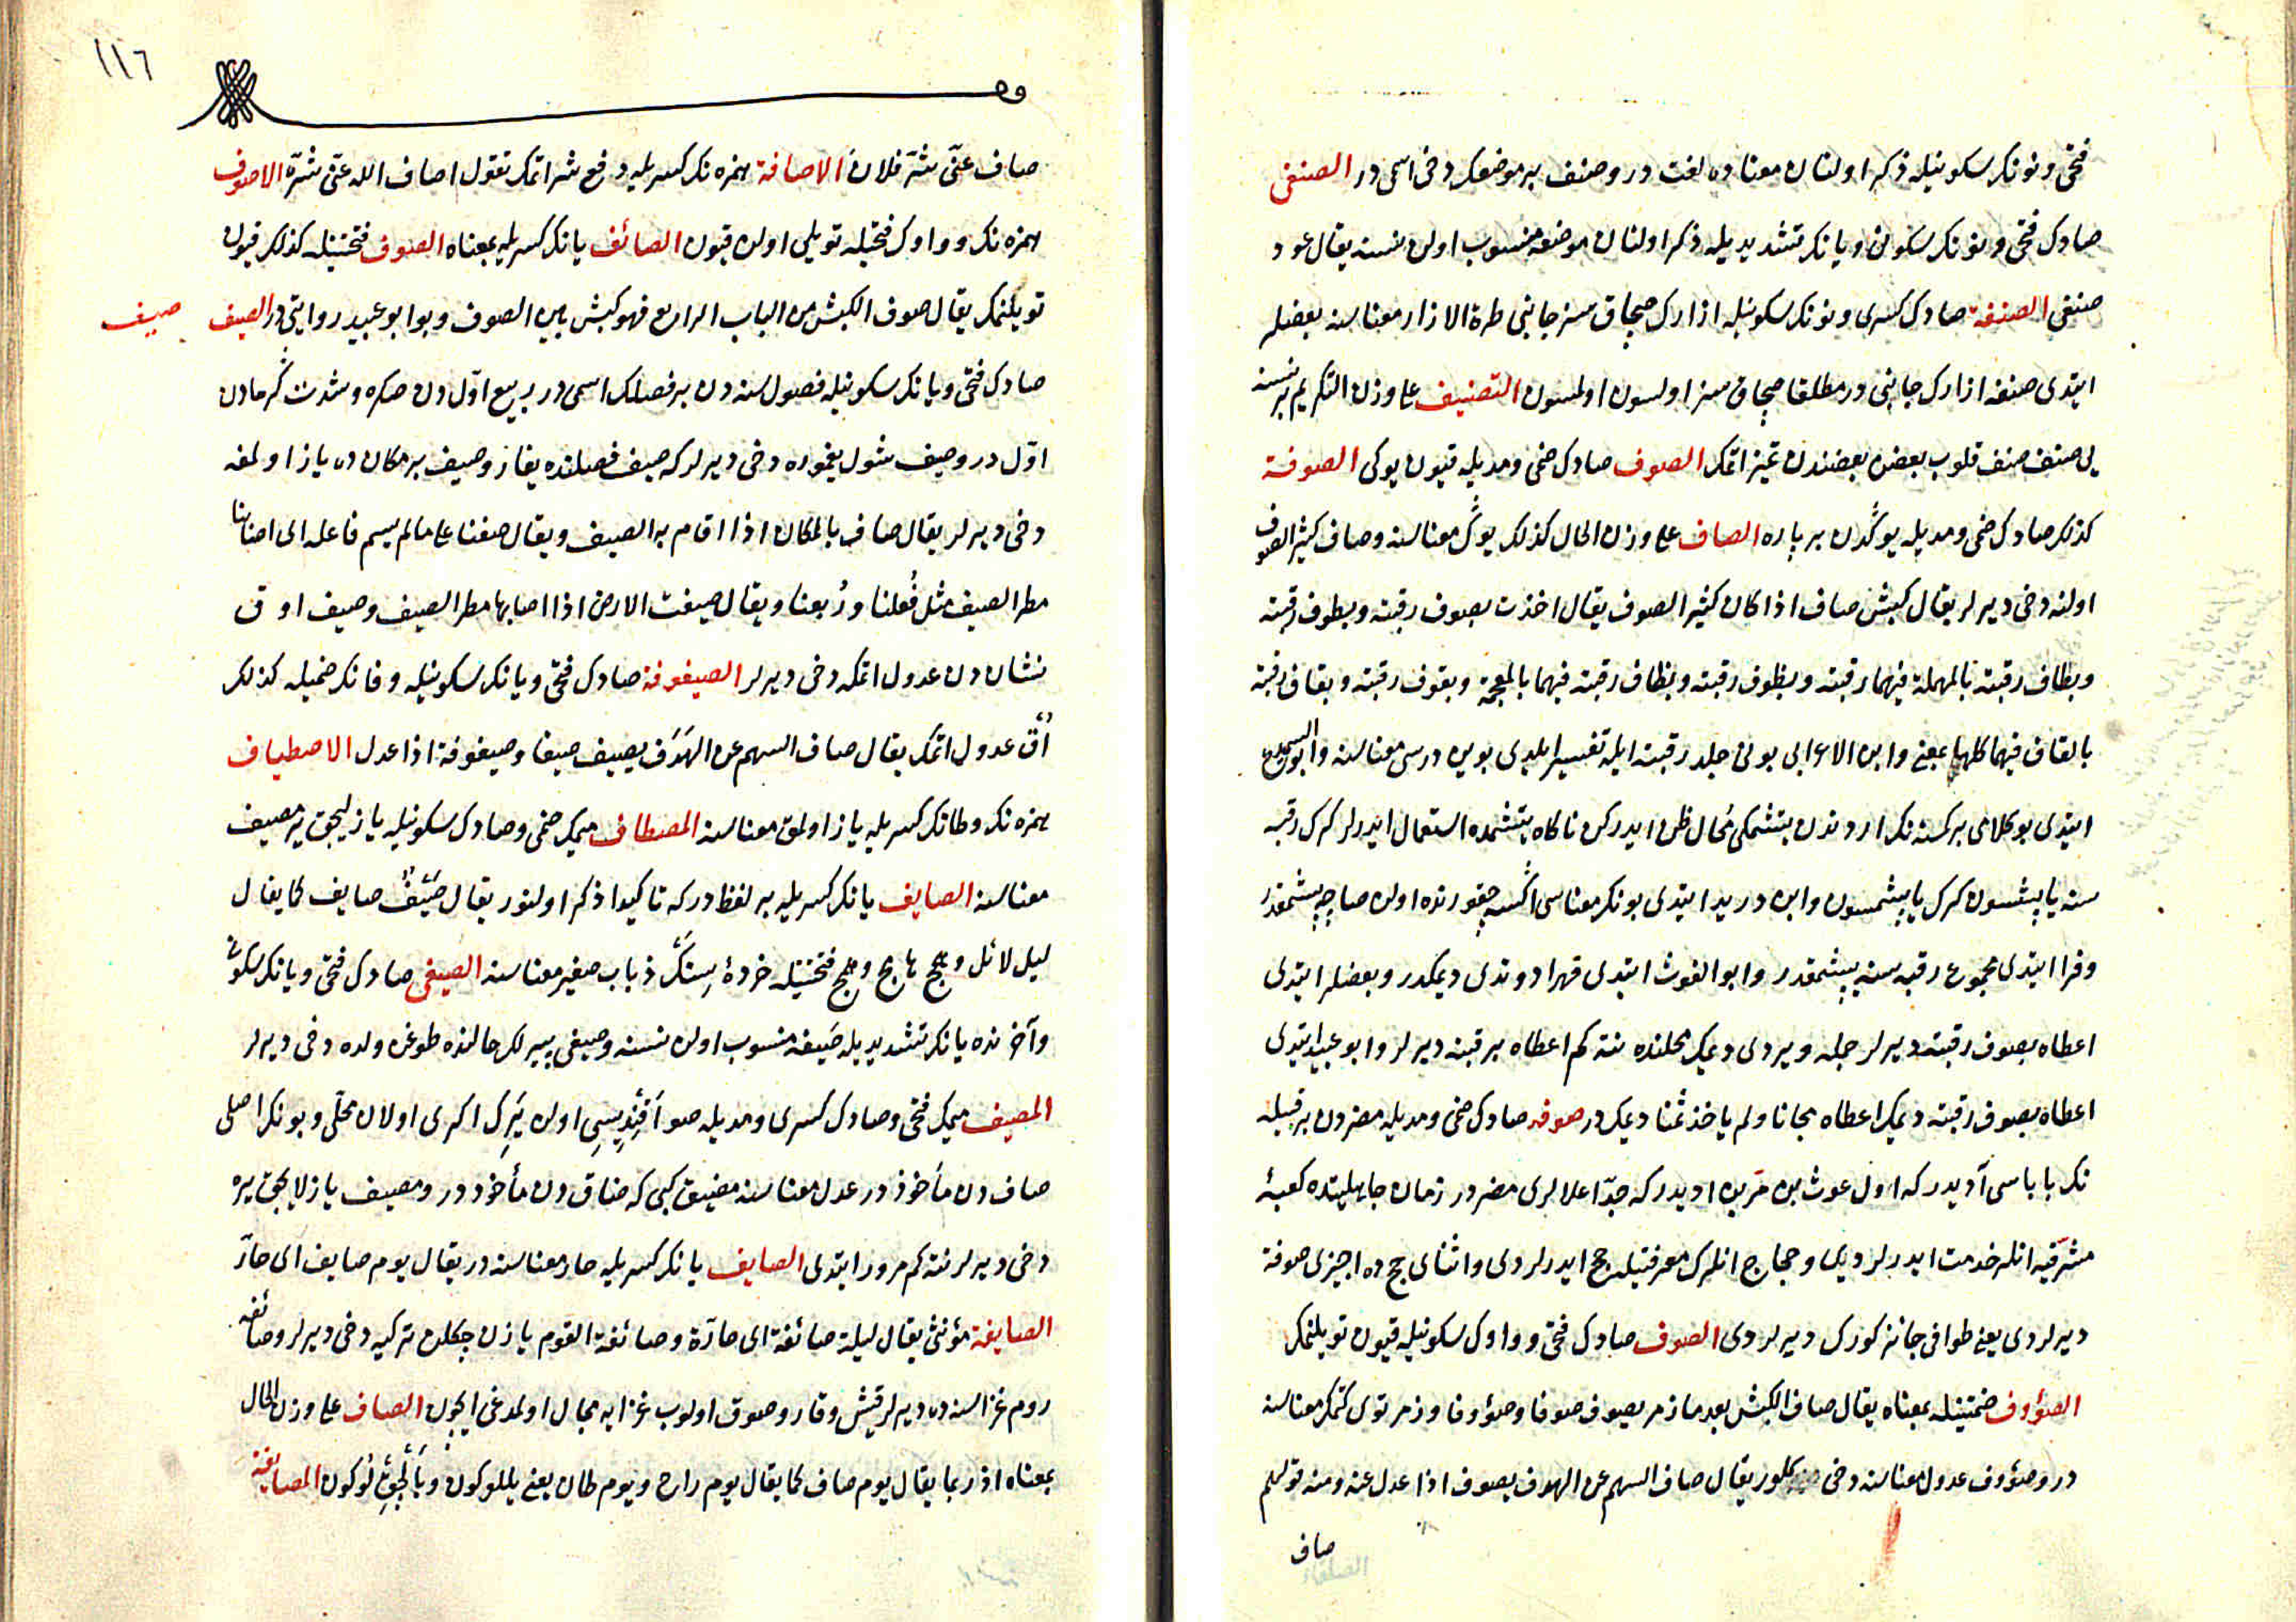 فتحى و نونكر سكونيله ذكر اولنان معناده لغت در و صنف بر موضعك دخى اسمى در الصنفى
صادك فتحى و نونكر سكونى و يانكر تشديديله ذكر اولنان موضعه منسوب اولن نسنه يقال عود
صنفى الصنفة صادك كسرى و نونكر سكونيله ازارك صچاق سز جانبى طرة الازار معناسنه بعضلر
ايتدى صنفه ازارك جانبى در مطلقا صچاق سز اولسون اولمسون التصنيف على وزن التكريم بر نسنه
يى صنف صنف قلوب بعضن بعضندن تميز اتمك الصوف صادك ضمى و مديله قيون يوكى الصوفة
كذلك صادك ضمى و مديله يوكدن بر پاره الصاف على وزن الحال كذلك يوك معناسنه و صاف كثير الصوف
اولنه دخى ديرلر يقال كبش صاف اذا كان كثير الصوف يقال اخذت بصوف رقبته و بطوف رقبته
و بطاف رقبته بالمهملة فيهما رقبته و بظوف رقبته و بظاف رقبته فيهما بالمعجمة و بقوف رقبته و بقاف رقبته
بالقاف فيهما كلها بمعنى و ابن الاعرابى بونى جلد رقبته ايله تفسير ايلدى بوين درسى معناسنه و ابو السميدع
ايتدى بو كلامى بر كمسنه نكر اردندن يتشمكى محال ظن ايدركن ناكاه يتشمده استعمال ايدرلر كرك رقبه
سنه ياپشسون كرك ياپشمسون و ابن دريد ايتدى بونكر معناسى اكسه چقورنده اولن صاچه ياپشمقدر
و فرا ايتدى مجموع رقبه سنه ياپشمقدر و ابو الغوث ايتدى قهرا دوتدى ديمكدر و بعضلر ايتدى
اعطاه بصوف رقبته ديرلر جمله ويردى ديمك محلنده نته كم اعطاه برقبته ديرلر و ابو عبيد ايتدى
اعطاه بصوف رقبته ديمك اعطاه مجانا و لم ياخذ ثمنا ديمك در صوفه صادك ضمى و مديله مضردن بر قبيله
نكر باباسى آديدر كه اول غوث بن مر بن اديدر كه جد اعلالرى مضردر زمان جاهليتده كعبهٔ
مشرفيه انلر خدمت ايدرلردى و حجاج انلرك معرفتيله حج ايدرلردى و اثناى حج ده اجيزى صوفة
ديرلردى يعنى طوافى جائز كورك ديرلردى الصوف صادك فتحى و واوك سكونيله قيون تويلنمك
الصؤوف ضمتينله بمعناه يقال صاف الكبش بعد ما زمر يصوف صوفا و صؤوفا و زمر توى كتمك معناسنه
در و صؤوف عدول معناسنه دخى كلور يقال صاف السهم عن الهدف يصوف اذا عدل عنه و منه قولهم
صاف
١١٦
صاف عنى شر فلان الاصافة همزه نكر كسريله دفع شر اتمك تقول اصاف الله عنى شره الاصوف
همزه نكر و واوك فتحيله تويلى اولن قيون الصائف يانكر كسريله بمعناه الصوف فتحتينله كذلك قيون
تويلنمك يقال صوف الكبش من الباب الرابع فهو كبش بين الصوف و بو ابو عبيد روايتى در الصيف
صيف
صادك فتحى و يانكر سكونيله فصول سنه دن بر فصلك اسمى در ربيع اولدن صكره و شدت كرمادن
اول در و صيف شول يغموره دخى ديرلر كه صيف فصلنده يغار و صيف بر مكان ده ياز اولمغه
دخى ديرلر يقال صاف بالمكان اذا اقام به الصيف و يقال صفنا على ما لم يسم فاعله اى اصابنا
مطر الصيف مثل فعلنا و ربعنا و يقال صيفت الارض اذا اصابها مطر الصيف و صيف اوق
نشان دن عدول اتمكه دخى ديرلر الصيفوفة صادك فتحى و يانكر سكونيله و فانكر ضميله كذلك
اق عدول اتمك يقال صاف السهم عن الهدف يصيف صيفا و صيفوفة اذا عدل الاصطياف
همزه نكر و طانكر كسريله ياز اولمق معناسنه المصطاف ميمك ضمى و صادك سكونيله يازليجق ير مصيف
معناسنه الصايف يانكر كسريله بر لفظ در كه تاكيدا ذكر اولنور يقال صيف صايف كما يقال
ليل لائل و همج هامج و همج فتحتينله خردهٔ سنك ذباب صغير معناسنه الصيفى صادك فتحى و يانكر سكونى
و آخرنده يانكر تشديديله صيفه منسوب اولن نسنه و صيفى پيرلك حالنده طوغن ولده دخى ديرلر
المصيف ميمك فتحى و صادك كسرى و مديله صو اقنديسى اولن يرك اكرى اولان محلى و بونكر اصلى
صاف دن مأخوذ در عدل معناسنه مضيق كبى كه ضاق دن مأخوذ در و مصيف يازلايجق يره
دخى ديرلر نته كم مرور ايتدى الصايف يانكر كسريله حار معناسنه در يقال يوم صايف اى حار
الصايفة مؤنثى يقال ليلة صائفة اى حارة و صائفة القوم يازن چكلن تركيه دخى ديرلر و صائفه
روم غزاسنه ده ديرلر قيش و قار و صوق اولوب غزايه مجال اولمدغى ايچون الصاف على وزن الحال
بمعناه اذ ربما يقال يوم صاف كما يقال يوم راح و يوم طان يعنى يللو كون و بالچق لو كون المصايفة